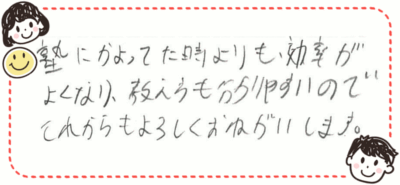 塾にかよってた時よりも、効率が
よくなり、教え方も分かりやすいので
これからもよろしくおねがいします。